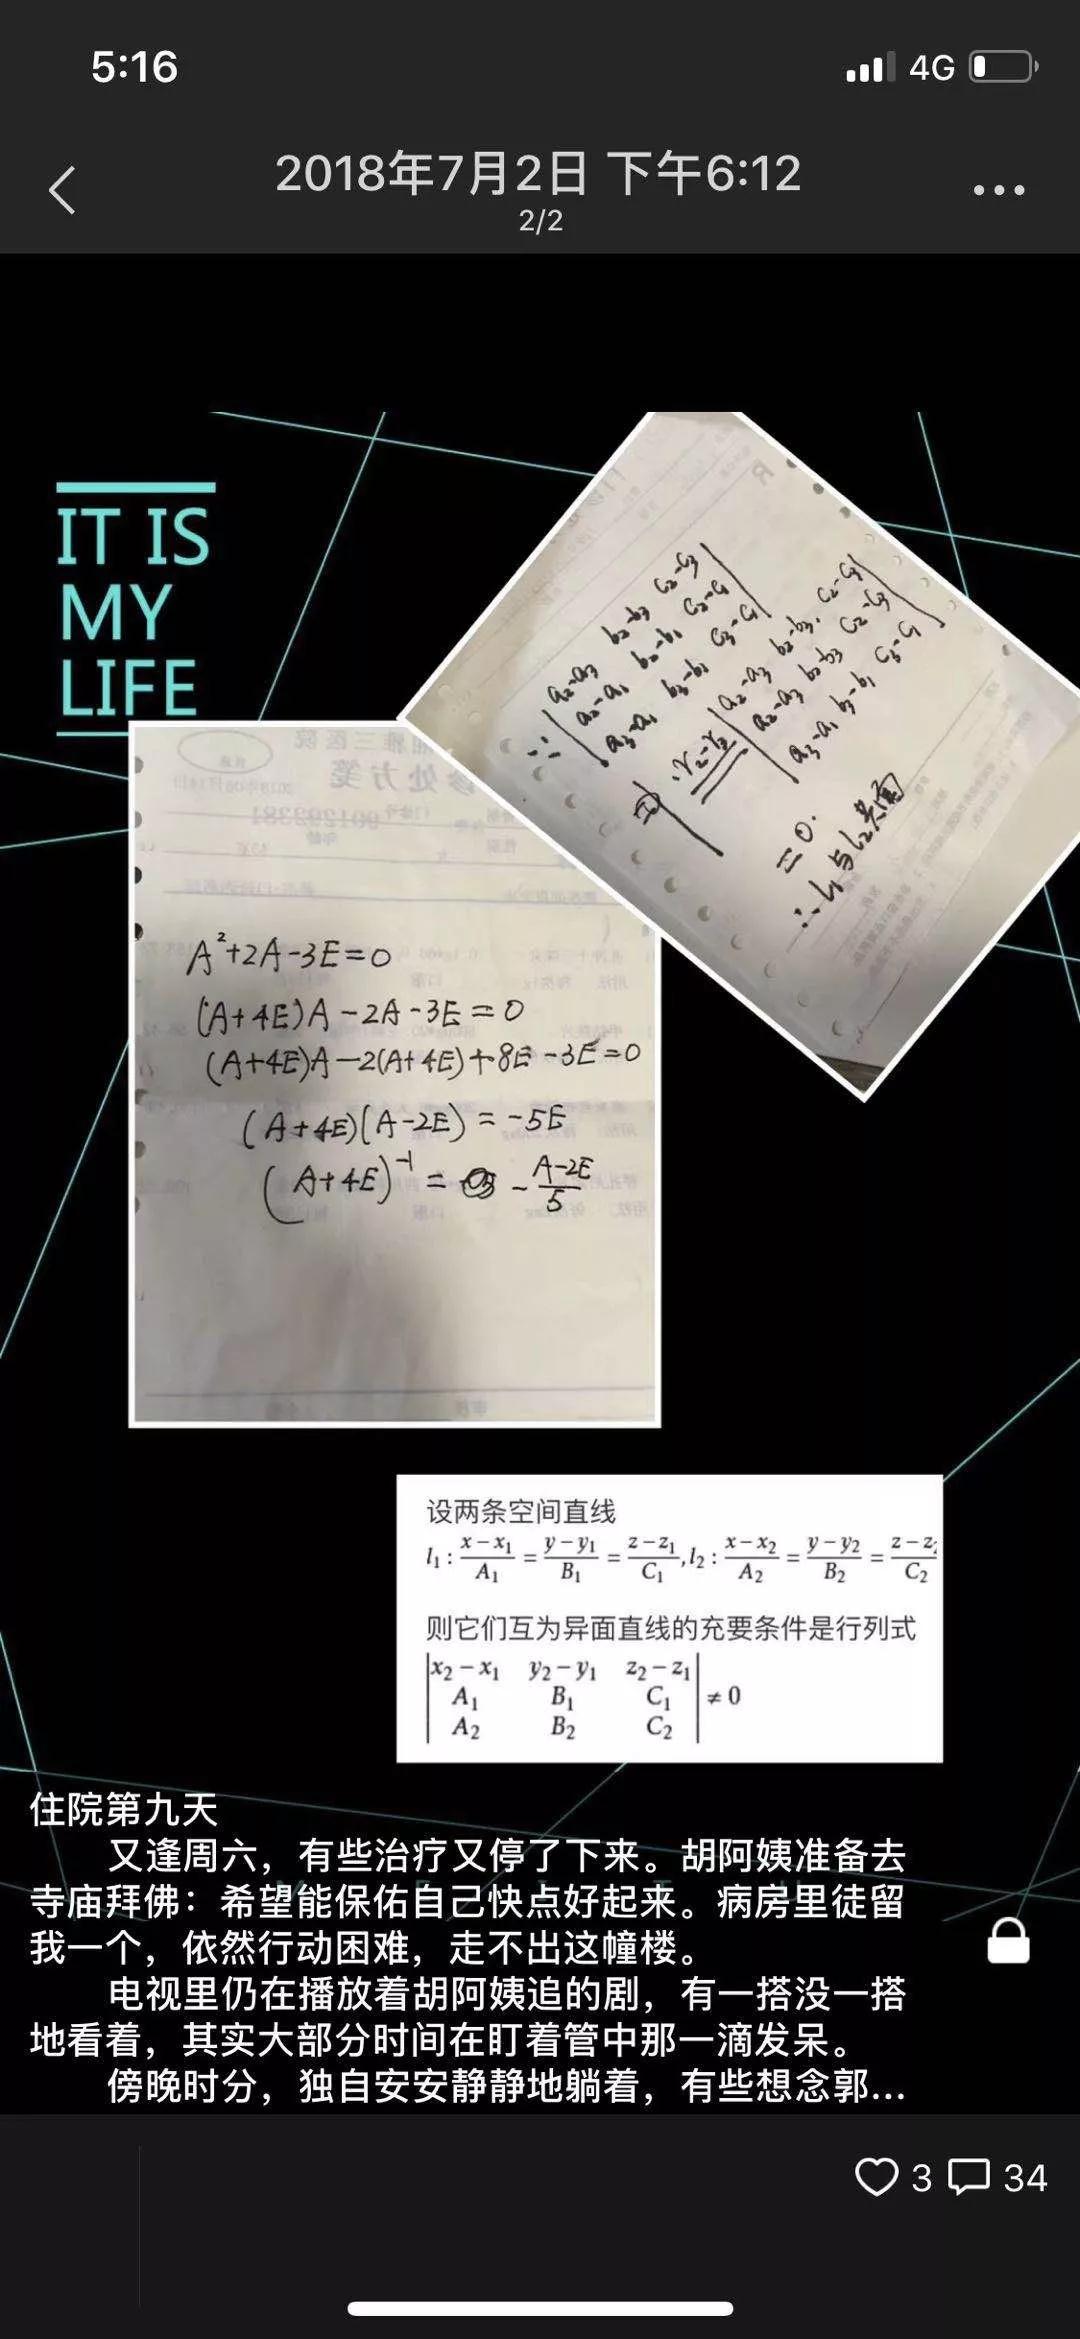 5:16
4G
2018年7月2日 下午6:12
2/2
IT IS
MY
LIFE
∴ | a₂-a₃ b₂-b₃ c₂-c₃ |
| a₂-a₁ b₂-b₁ c₂-c₁ |
| a₃-a₁ b₃-b₁ c₃-c₁ |
r₂-r₃ | a₂-a₃ b₂-b₃ c₂-c₃ |
| a₂-a₃ b₂-b₃ c₂-c₃ |
| a₃-a₁ b₃-b₁ c₃-c₁ |
=0.
∴ l₁与l₂共面
A²+2A-3E=0
(A+4E)A-2A-3E=0
(A+4E)A-2(A+4E)+8E-3E=0
(A+4E)(A-2E)=-5E
(A+4E)⁻¹= - (A-2E)/5
设两条空间直线
l₁: (x-x₁)/A₁ = (y-y₁)/B₁ = (z-z₁)/C₁, l₂: (x-x₂)/A₂ = (y-y₂)/B₂ = (z-z₂)/C₂
则它们互为异面直线的充要条件是行列式
| x₂-x₁ y₂-y₁ z₂-z₁ |
| A₁ B₁ C₁ | ≠0
| A₂ B₂ C₂ |
住院第九天
又逢周六，有些治疗又停了下来。胡阿姨准备去
寺庙拜佛：希望能保佑自己快点好起来。病房里徒留
我一个，依然行动困难，走不出这幢楼。
电视里仍在播放着胡阿姨追的剧，有一搭没一搭
地看着，其实大部分时间在盯着管中那一滴发呆。
傍晚时分，独自安安静静地躺着，有些想念郭...
3 34